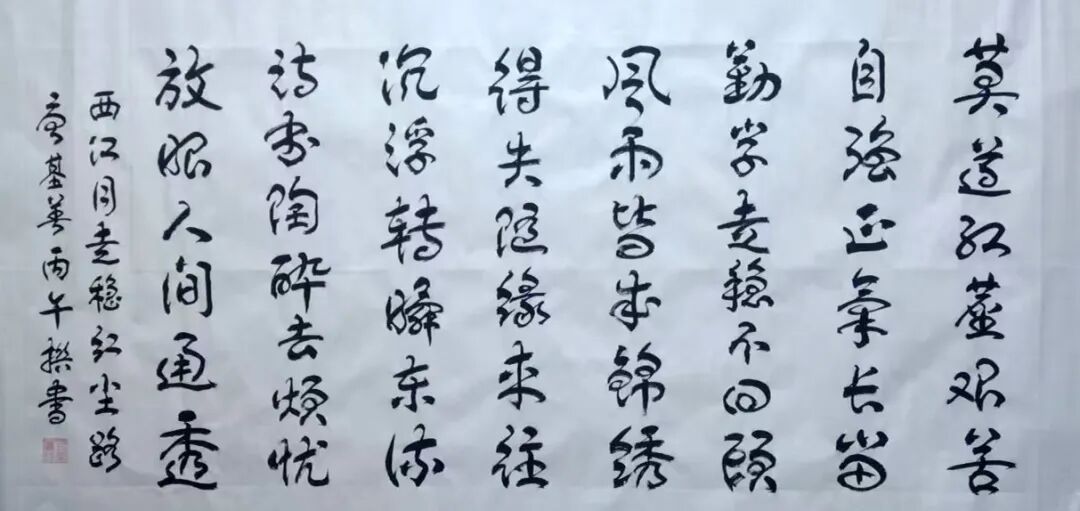 莫道红尘艰苦
自强正气长留
勤学走稳不回头
风雨皆成锦绣
得失随缘来往
沉浮转瞬东流
诗书陶醉去烦忧
放眼人间通透
西江月走稳红尘路
基英丙午撰书